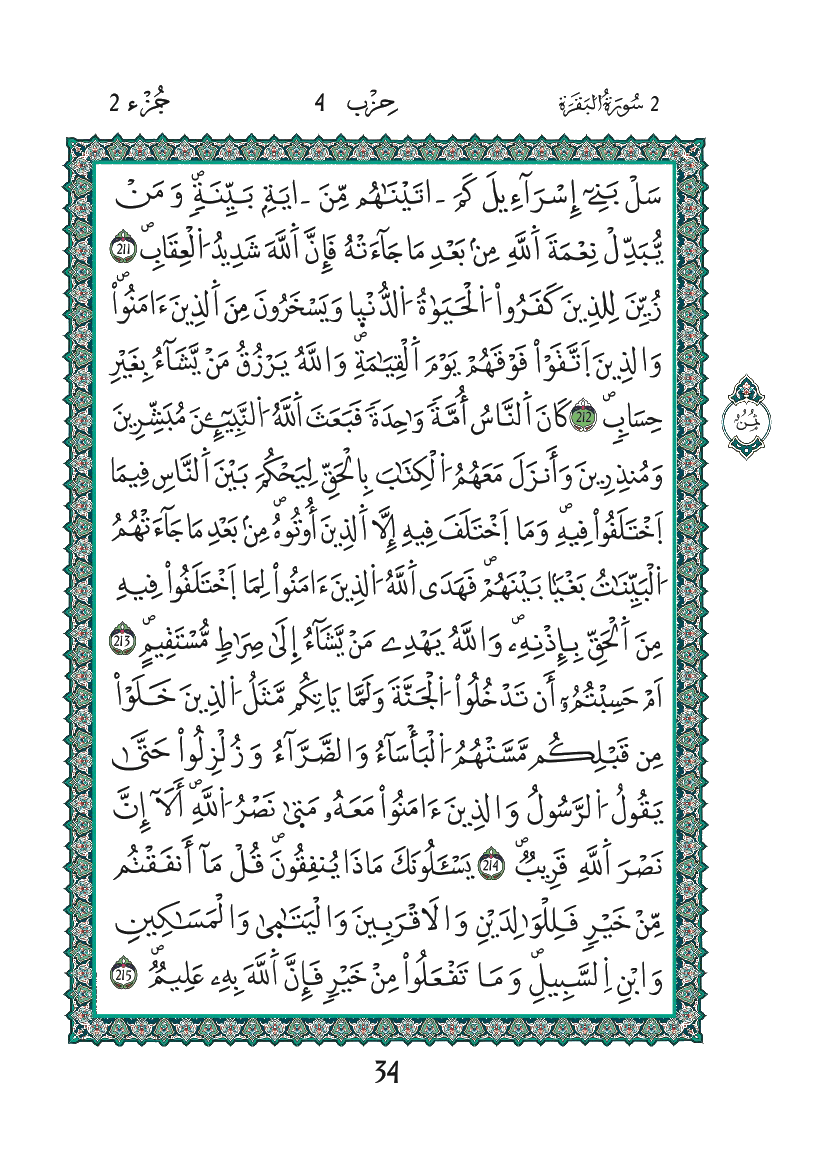 2 سُورَةُ البَقَرَة
حِزْب 4
جُزْء 2
سَلْ بَنِےٓ إِسْرَآءِيلَ كَمَ ـ اتَيْنَٰهُم مِّنَ ـ ايَةِۢ بَيِّنَةٖۖ وَمَنْ
يُّبَدِّلْ نِعْمَةَ اَ۬للَّهِ مِنۢ بَعْدِ مَا جَآءَتْهُ فَإِنَّ اَ۬للَّهَ شَدِيدُ اُ۬لْعِقَابِۖ 211
زُيِّنَ لِلذِينَ كَفَرُواْ اُ۬لْحَيَوٰةُ اُ۬لدُّنْي۪ا وَيَسْخَرُونَ مِنَ اَ۬لذِينَ ءَامَنُواْۖ
وَالذِينَ اَ۪تَّقَوْاْ فَوْقَهُمْ يَوْمَ اَ۬لْقِيَٰمَةِۖ وَاللَّهُ يَرْزُقُ مَنْ يَّشَآءُ بِغَيْرِ
حِسَابٖۖ 212 كَانَ اَ۬لنَّاسُ أُمَّةٗ وَٰحِدَةٗ فَبَعَثَ اَ۬للَّهُ اُ۬لنَّبِيٓـِٕۧنَ مُبَشِّرِينَ
وَمُنذِرِينَ وَأَنزَلَ مَعَهُمُ اُ۬لْكِتَٰبَ بِالْحَقِّ لِيَحْكُمَ بَيْنَ اَ۬لنَّاسِ فِيمَا
اَ۪خْتَلَفُواْ فِيهِۖ وَمَا اَ۪خْتَلَفَ فِيهِ إِلَّا اَ۬لذِينَ أُوتُوهُۖ مِنۢ بَعْدِ مَا جَآءَتْهُمُ
اُ۬لْبَيِّنَٰتُ بَغْيَاۢ بَيْنَهُمْۖ فَهَدَى اَ۬للَّهُ اُ۬لذِينَ ءَامَنُواْ لِمَا اَ۪خْتَلَفُواْ فِيهِ
مِنَ اَ۬لْحَقِّ بِإِذْنِهِۦۖ وَاللَّهُ يَهْدِے مَنْ يَّشَآءُ إِلَىٰ صِرَٰطٖ مُّسْتَقِيمٍۖ 213
اَمْ حَسِبْتُمُۥٓ أَن تَدْخُلُواْ اُ۬لْجَنَّةَ وَلَمَّا يَاتِكُم مَّثَلُ اُ۬لذِينَ خَلَوْاْ
مِن قَبْلِكُم مَّسَّتْهُمُ اُ۬لْبَأْسَآءُ وَالضَّرَّآءُ وَزُلْزِلُواْ حَتَّىٰ
يَقُولُ اُ۬لرَّسُولُ وَالذِينَ ءَامَنُواْ مَعَهُۥ مَت۪ىٰ نَصْرُ اُ۬للَّهِۖ أَلَآ إِنَّ
نَصْرَ اَ۬للَّهِ قَرِيبٞۖ 214 يَسْـَٔلُونَكَ مَاذَا يُنفِقُونَۖ قُلْ مَآ أَنفَقْتُم
مِّنْ خَيْرٖ فَلِلْوَٰلِدَيْنِ وَالَاقْرَبِينَ وَالْيَتَٰم۪ىٰ وَالْمَسَٰكِينِ
وَابْنِ اِ۬لسَّبِيلِۖ وَمَا تَفْعَلُواْ مِنْ خَيْرٖ فَإِنَّ اَ۬للَّهَ بِهِۦ عَلِيمٞۖ 215
ثُمُن
34